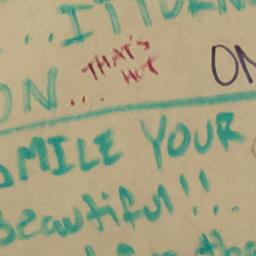 ...IT TURN
ON...
THAT'S
HOT
ON
SMILE YOUR
beautiful!!
the